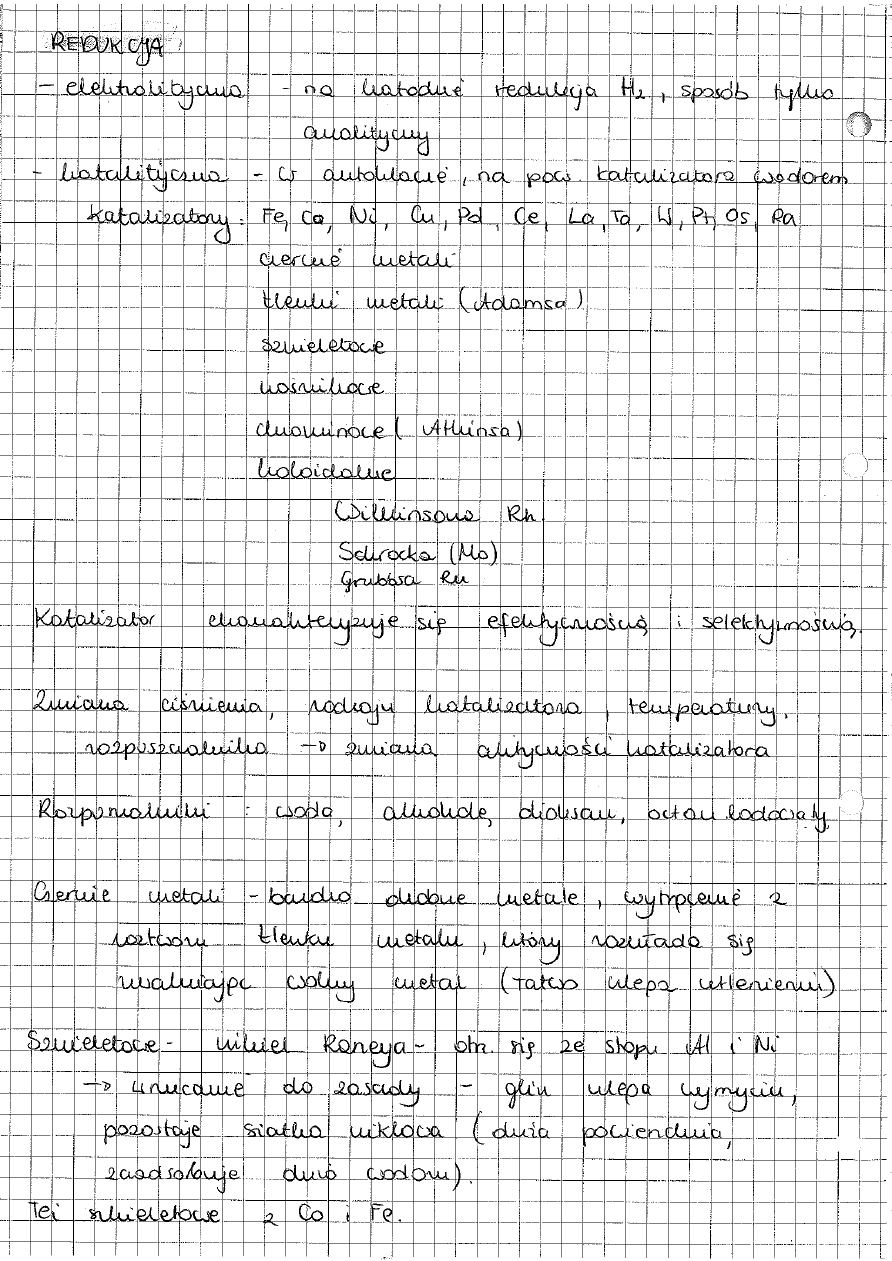 REDUKCJA
- elektrolityczna - na katodzie redukcja H₂, sposób tylko
analityczny
- katalityczna - w autoklawie, na pow. katalizatora wodorem
Katalizatory: Fe, Co, Ni, Cu, Pd, Ce, La, Ta, W, Pt, Os, Ra
czernie metali
tlenki metali (Adamsa)
szkieletowe
nośnikowe
chrominowe (Atkinsa)
koloidalne
Wilkinsona Rh
Schrocka (Mo)
Grubbsa Ru
Katalizator charakteryzuje się efektywnością i selektywnością.
Zmiana ciśnienia, rodzaju katalizatora, temperatury,
rozpuszczalnika → zmiana aktywności katalizatora
Rozpuszczalniki: woda, alkohole, dioksan, octan lodowaty
Czernie metali - bardzo drobne metale, wytrącenie z
roztworu tlenku metalu, który rozkłada się
uwalniając wolny metal (łatwo ulega utlenieniu)
Szkieletowe - nikiel Raneya - otrz. się ze stopu Al i Ni
→ wrzucanie do zasady - glin ulega wymyciu,
pozostaje siatka niklowa (duża powierzchnia,
zaadsorbuje dużo wodoru).
Też szkieletowe z Co i Fe.